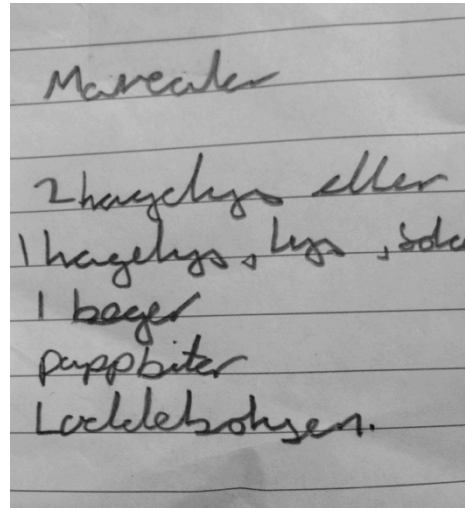 Marealer
2 hagelys eller
1 hagelys, lys,
1 beger
pappbiter
Loddebolsen.